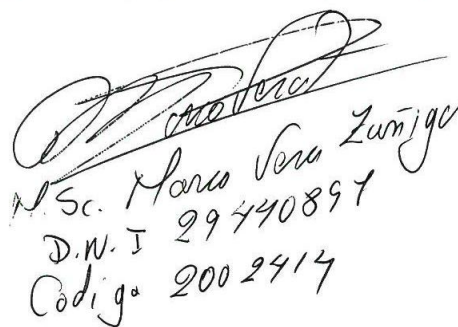 M.Sc. Marco Vera Zuñiga
D.N.I 29440897
Codigo 2002414